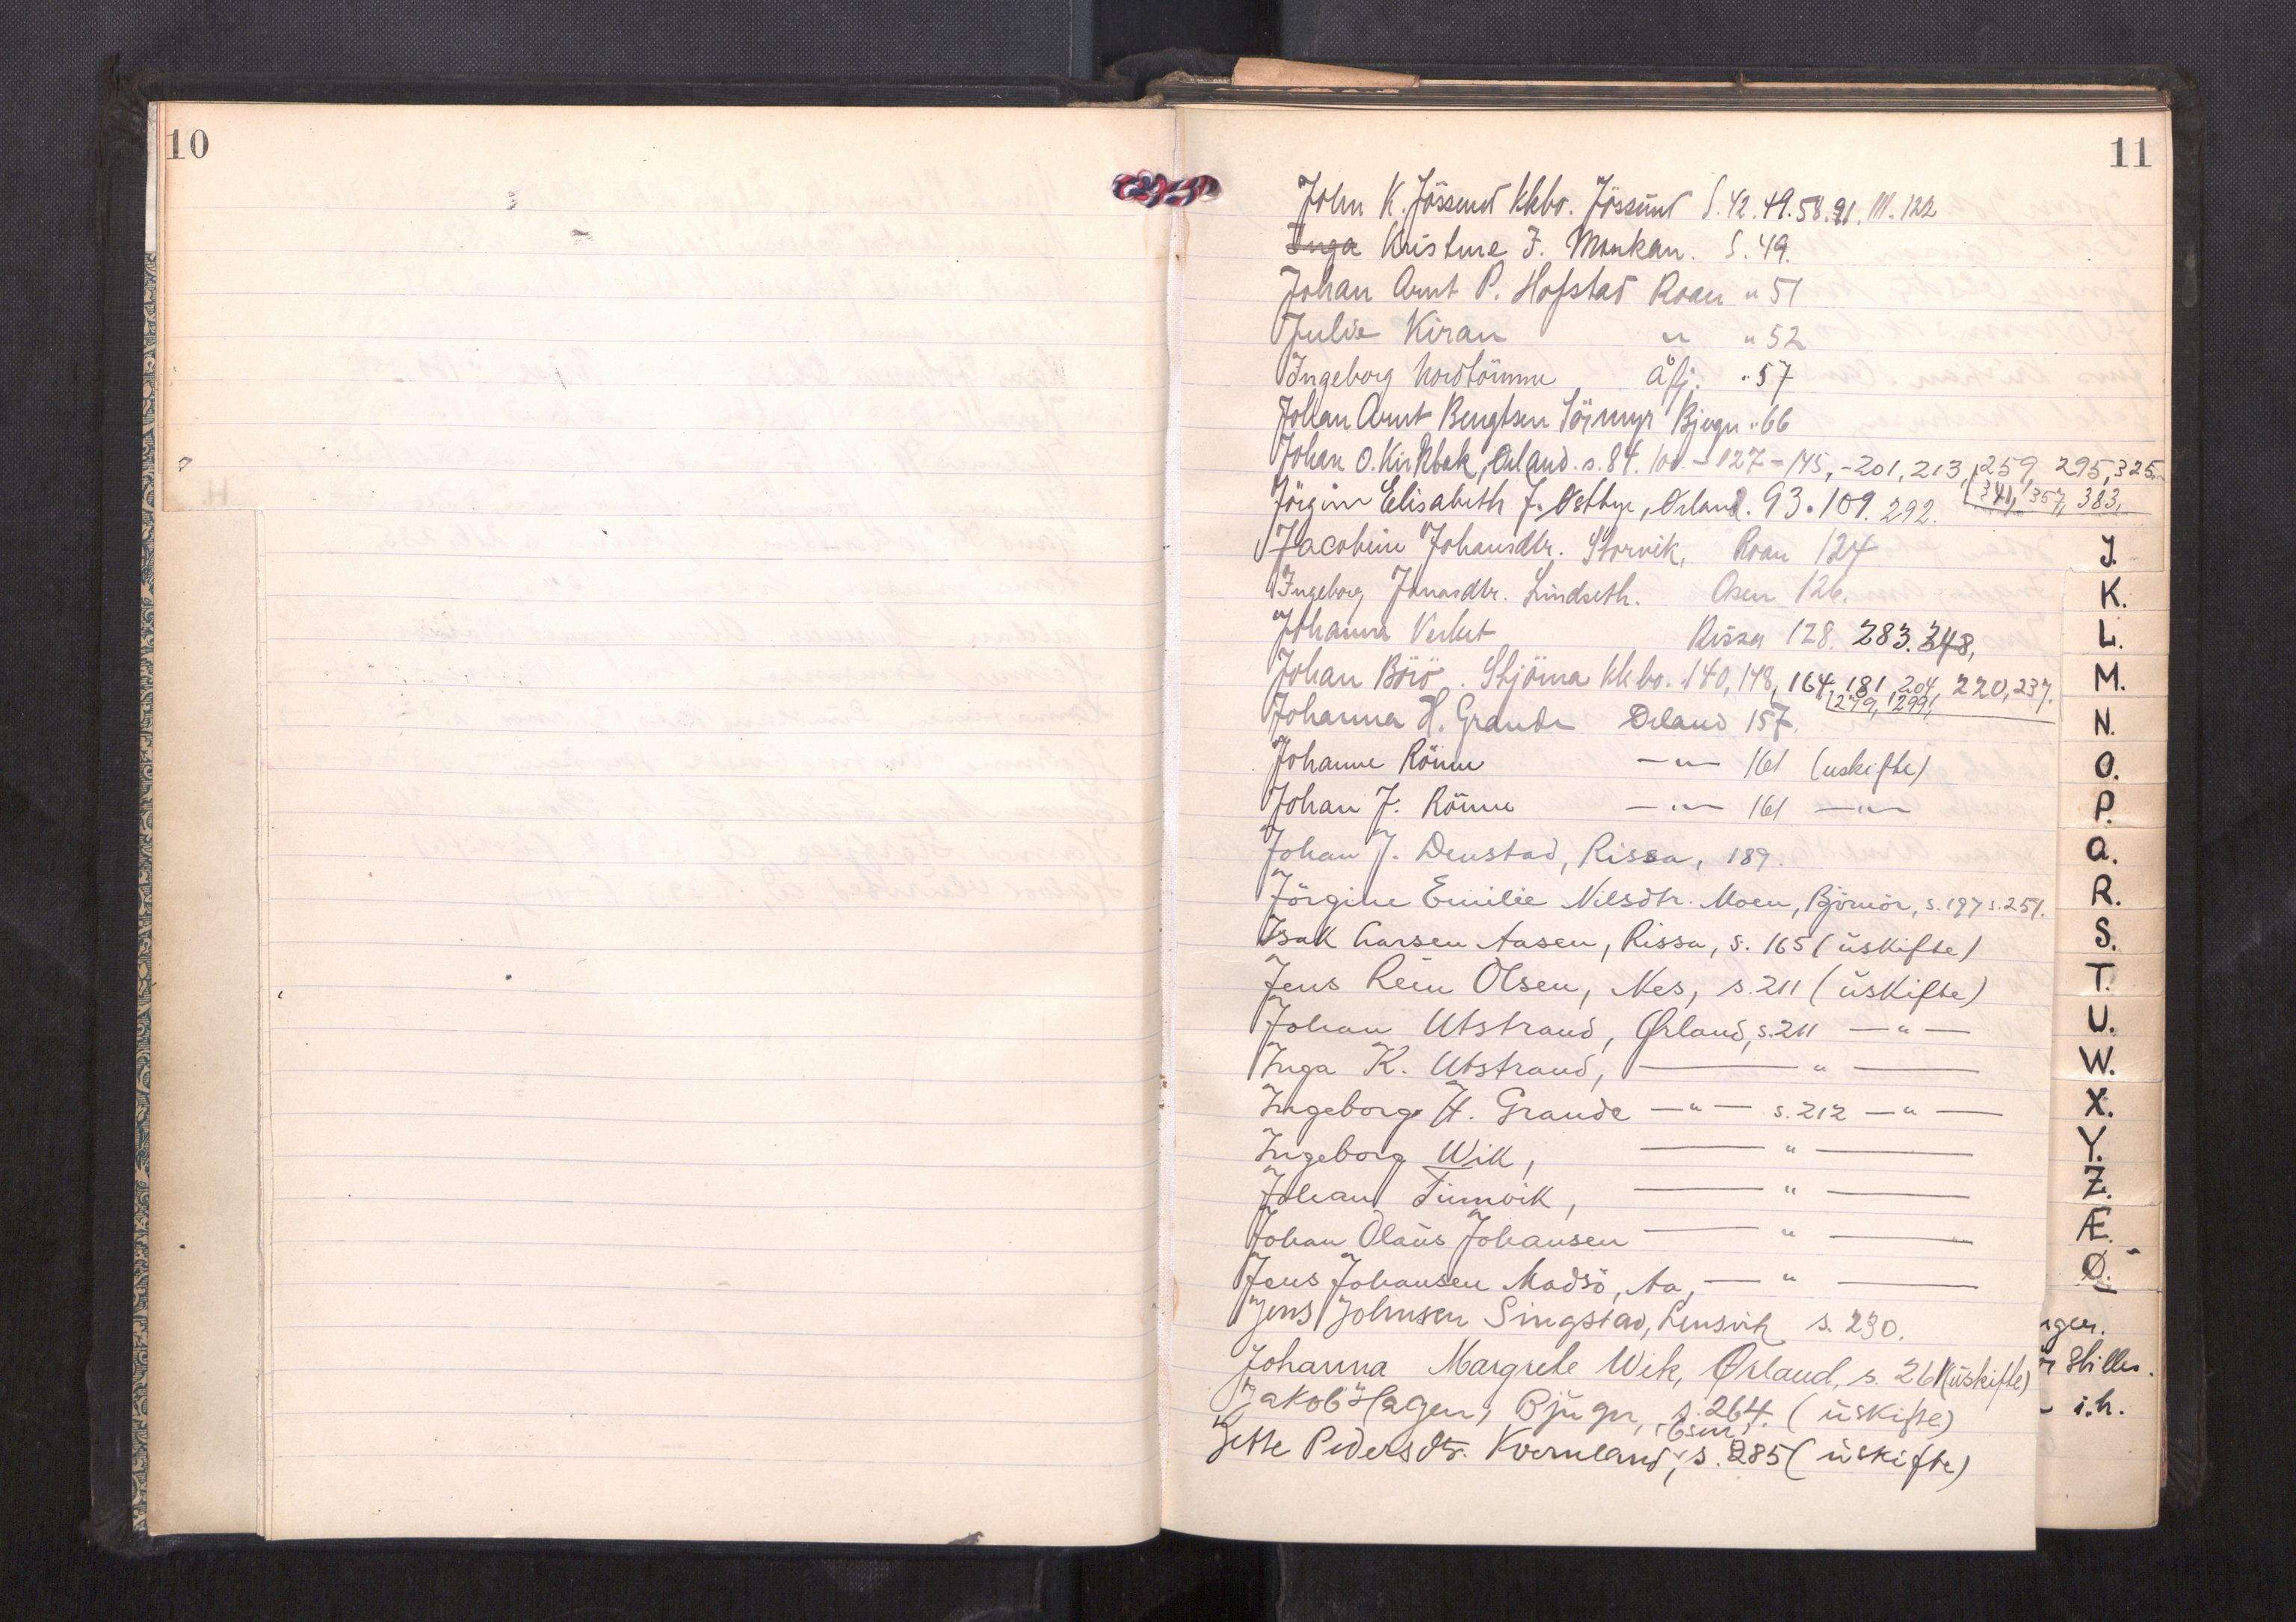 10
11
John K. Jössund kkbo. Jössund S. 42. 49. 58. 91. 111. 122
Inga Kristine J. Monkan. S. 49.
Johan Arnt P. Hofstad Roan " 51
Julie Kiran " " 52
Ingeborg Nordtömme Åfj. " 57
Johan Arnt Bengtsen Sörmyr Bjugn " 66
Johan O. Kirkbak, Örland. s. 84. 100. - 127 - 145, - 201, 213, 259, 295, 325.
341, 357, 383,
Jörgine Elisabeth J. Östbye, Örland. 93. 109. 292.
Jacobine Johansdtr. Storvik, Roan 124
Ingeborg Jonasdtr. Lindseth. Osen 126.
Johanna Verket Rissa 128. 283. 348,
Johan Börö. Stjörna kkbo. 140, 148, 164, 181, 204, 220, 237.
279, 299,
Johanna H. Grande Örland 157.
Johanne Rönne — " — 161 (uskifte)
Johan J. Rönne — " — 161 — " —
Johan J. Denstad, Rissa, 189.
Jörgine Emilie Nilsdtr. Moen, Björnör, s. 197 s. 251.
Isak Larsen Aasen, Rissa, s. 165 (uskifte)
Jens Rein Olsen, Nes, s. 211 (uskifte)
Johan Utstrand, Ørland, s. 211 — " —
Inga K. Utstrand, — " —
Ingeborg H. Grande — " — s. 212 — " —
Ingeborg Wik, — " —
Johan Finvik, — " —
Johan Olaus Johansen — " —
Jens Johansen Madsö, Aa, — " —
Jens Johnsen Singstad, Lensvik s. 230.
Johanna Margrete Wik, Ørland, s. 261 (uskifte)
Jakob Hagen, Bjugn, s. 264. (uskifte)
Jette Pedersdtr. Kvernland, (Osen) s. 285 (uskifte)
J.
K.
L.
M.
N.
O.
P.
Q.
R.
S.
T.
U.
W.
X.
Y.
Z.
Æ.
Ø.
i.h.